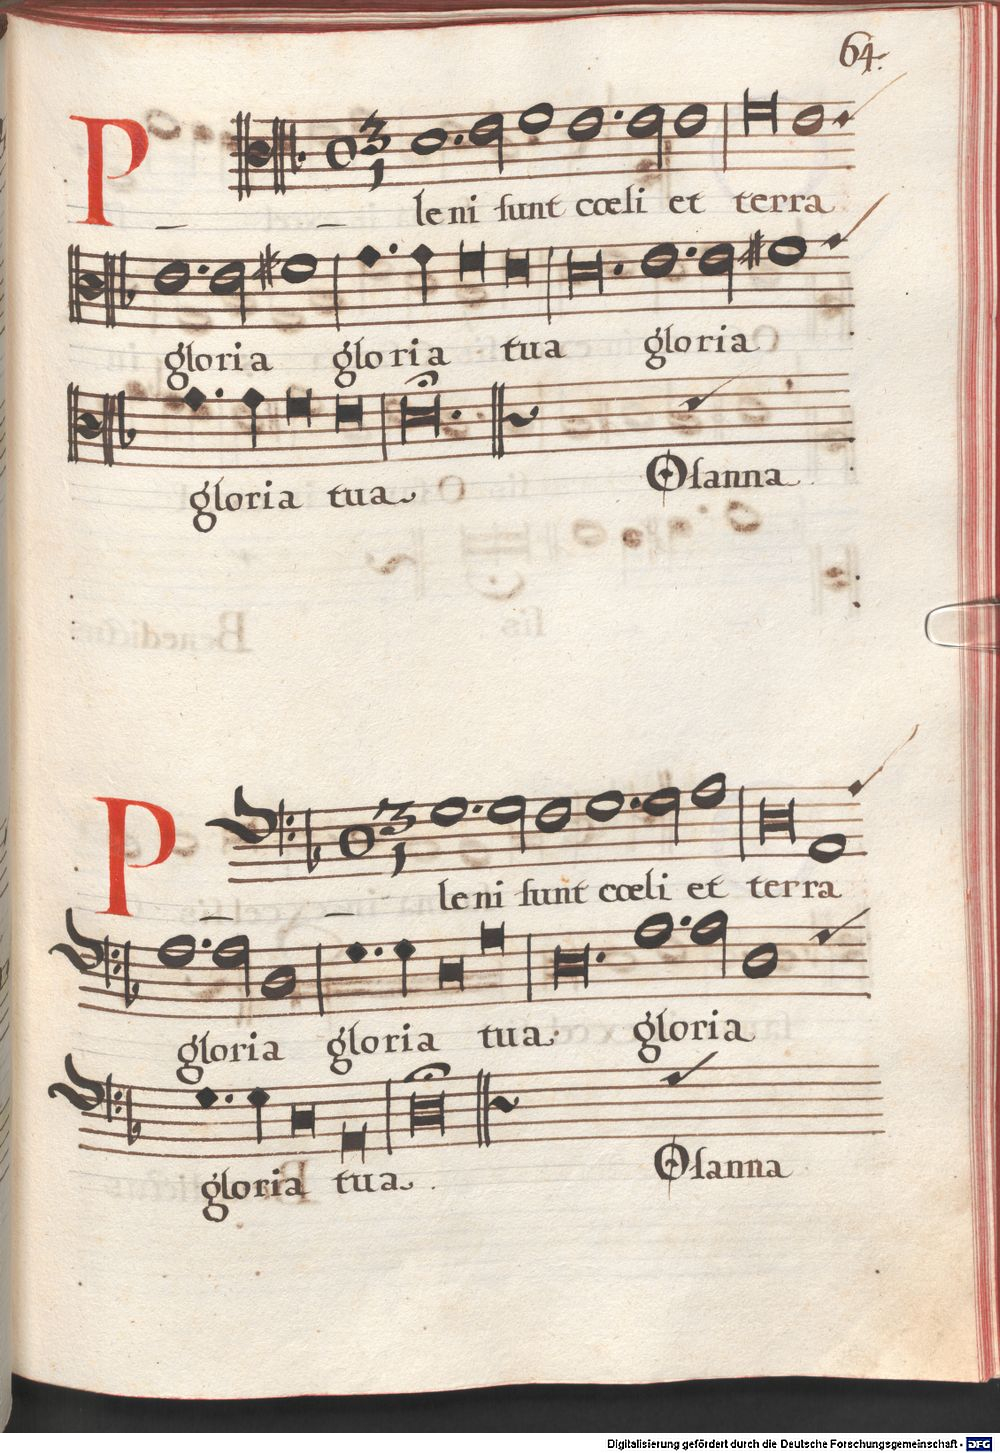 64.
P
3
1
leni ſunt cœli et terra
gloria gloria tua gloria
gloria tua Oſanna
P
3
1
leni ſunt cœli et terra
gloria gloria tua. gloria
gloria tua. Oſanna
Digitalisierung gefördert durch die Deutsche Forschungsgemeinschaft - DFG